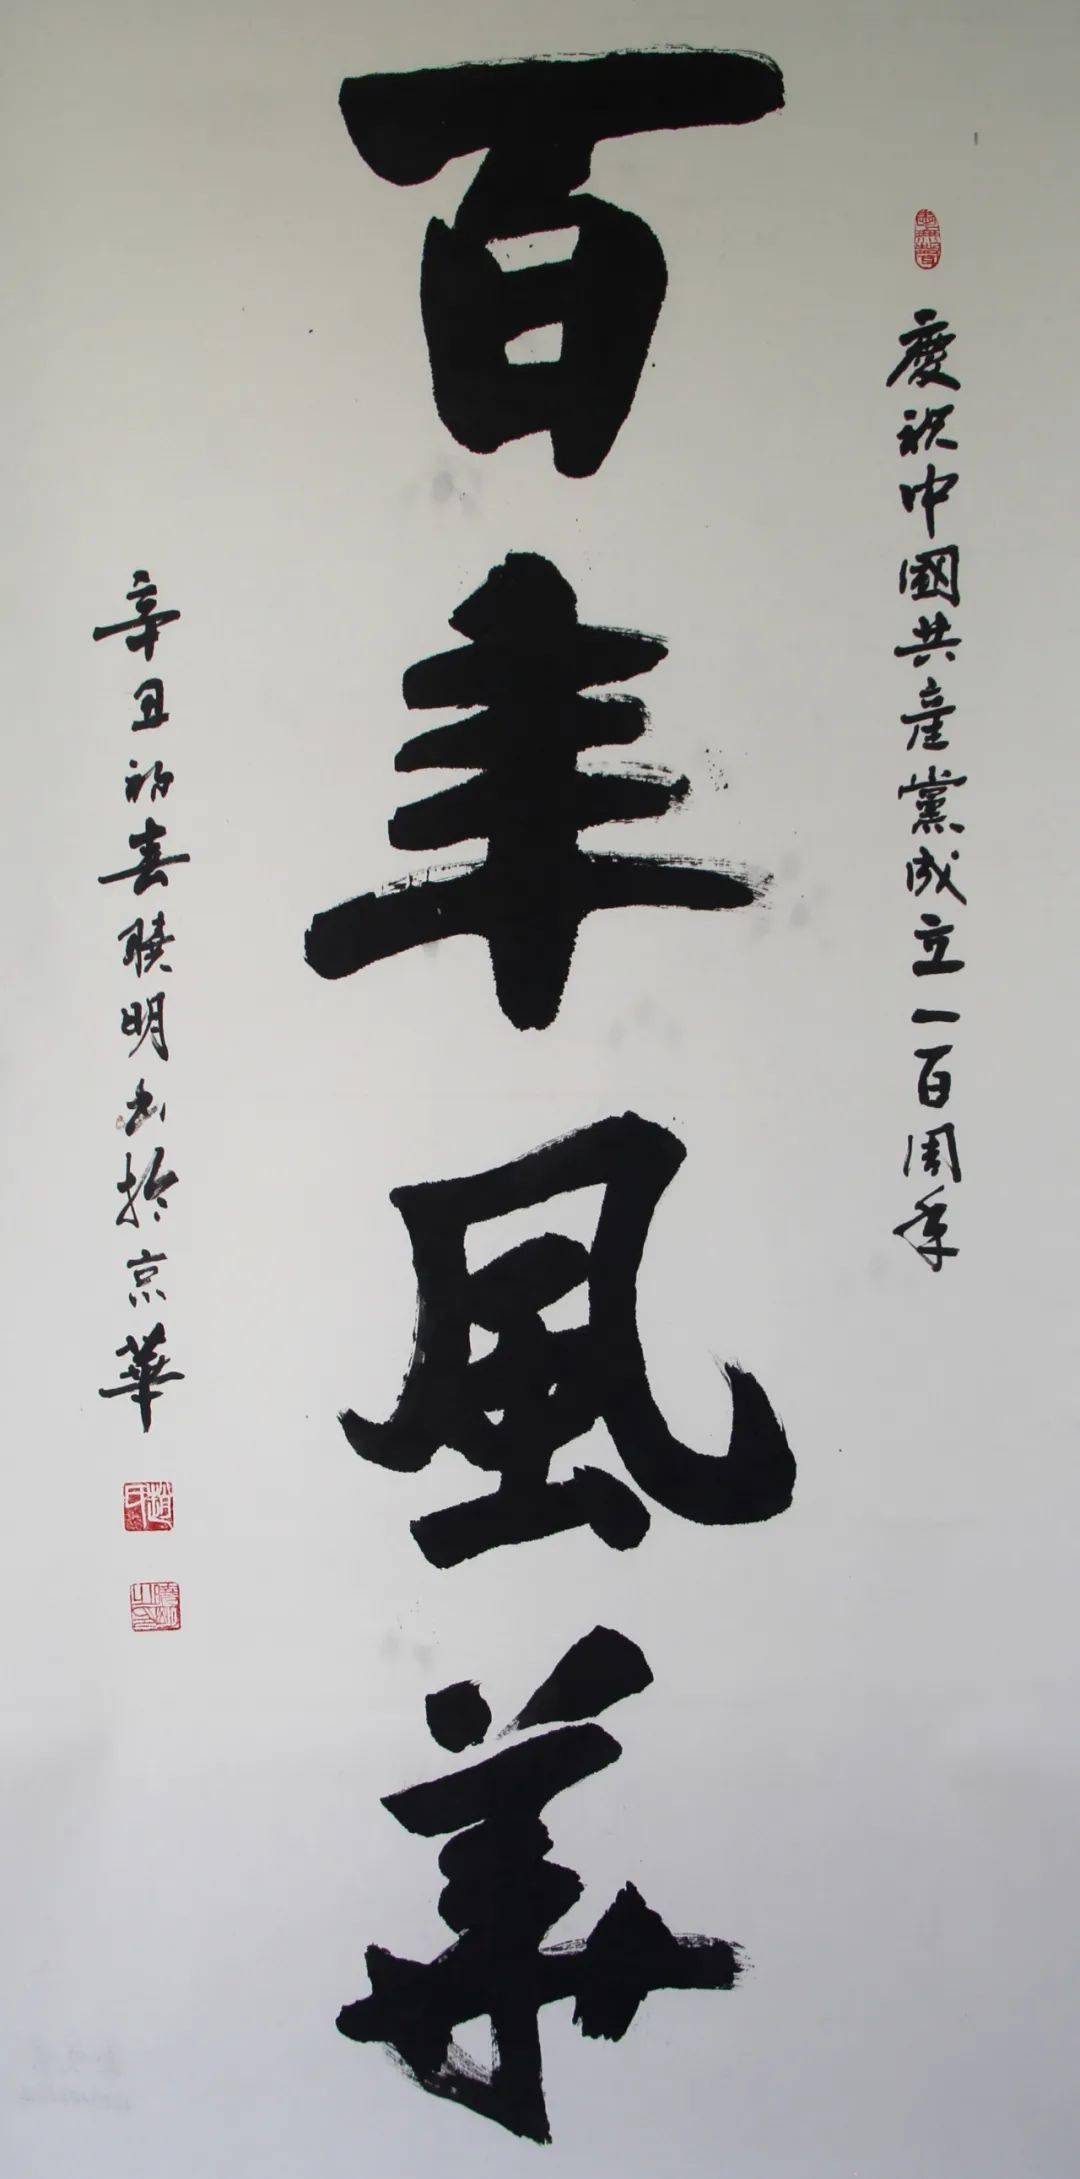 慶祝中國共產黨成立一百周年
百年風華
辛丑初春曉明書於京華